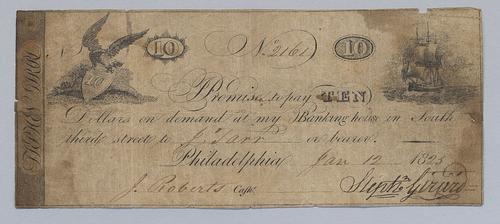 10 No. 2161 10
10
Promise to pay TEN
Dollars on demand at my Banking house in South
third street to J. Tarr or bearer.
Philadelphia Jan 12 1825
J. Roberts Cashr. Stephn. Girard